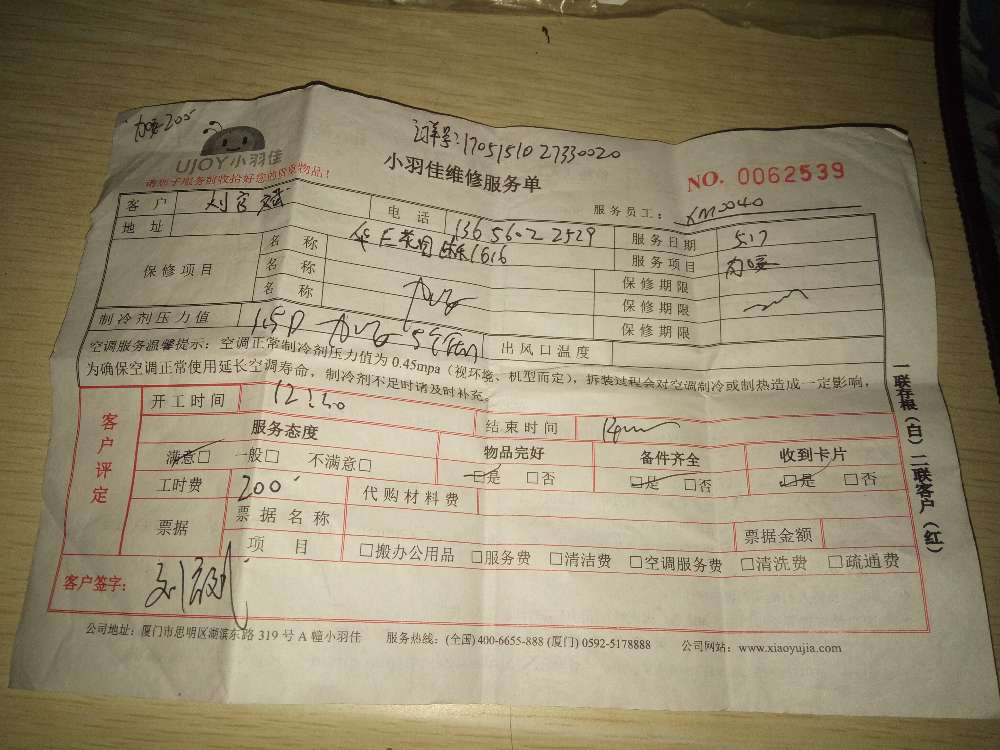 UJOY小羽佳
请您于服务前收拾好您的贵重物品!
小羽佳维修服务单
NO. 0062539
服务员工:
客户 电话 13656022529 服务日期 5.17
地址 服务项目
保修项目 名称 保修期限
名称 保修期限
名称 保修期限
制冷剂压力值 出风口温度
空调服务温馨提示:空调正常制冷剂压力值为0.45mpa(视环境、机型而定),拆装过程会对空调制冷或制热造成一定影响,
为确保空调正常使用延长空调寿命,制冷剂不足时请及时补充。
客户评定
开工时间 结束时间
服务态度 物品完好 备件齐全 收到卡片
满意□ 一般□ 不满意□ □是 □否 □是 □否 □是 □否
工时费 200 代购材料费
票据 票据名称 票据金额
项目 □搬办公用品 □服务费 □清洁费 □空调服务费 □清洗费 □疏通费
客户签字:
一联存根(白)二联客户(红)
公司地址:厦门市思明区湖滨东路319号A幢小羽佳 服务热线:(全国)400-6655-888 (厦门) 0592-5178888 公司网站:www.xiaoyujia.com